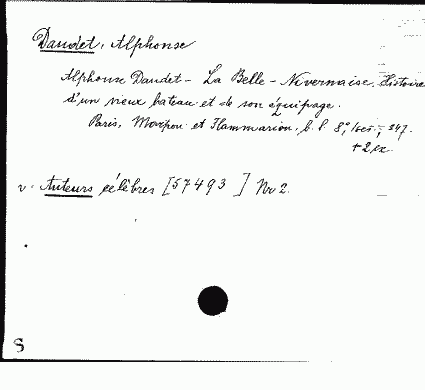 Daudet, Alphonse
Alphonse Daudet - La Belle-Nivernaise. Histoire
d'un vieux bateau et de son équipage.
Paris, Marpon et Flammarion, b.l. 8°, 247.
+ 2 ex.
v. Auteurs célèbres [57493] Nr 2.
S